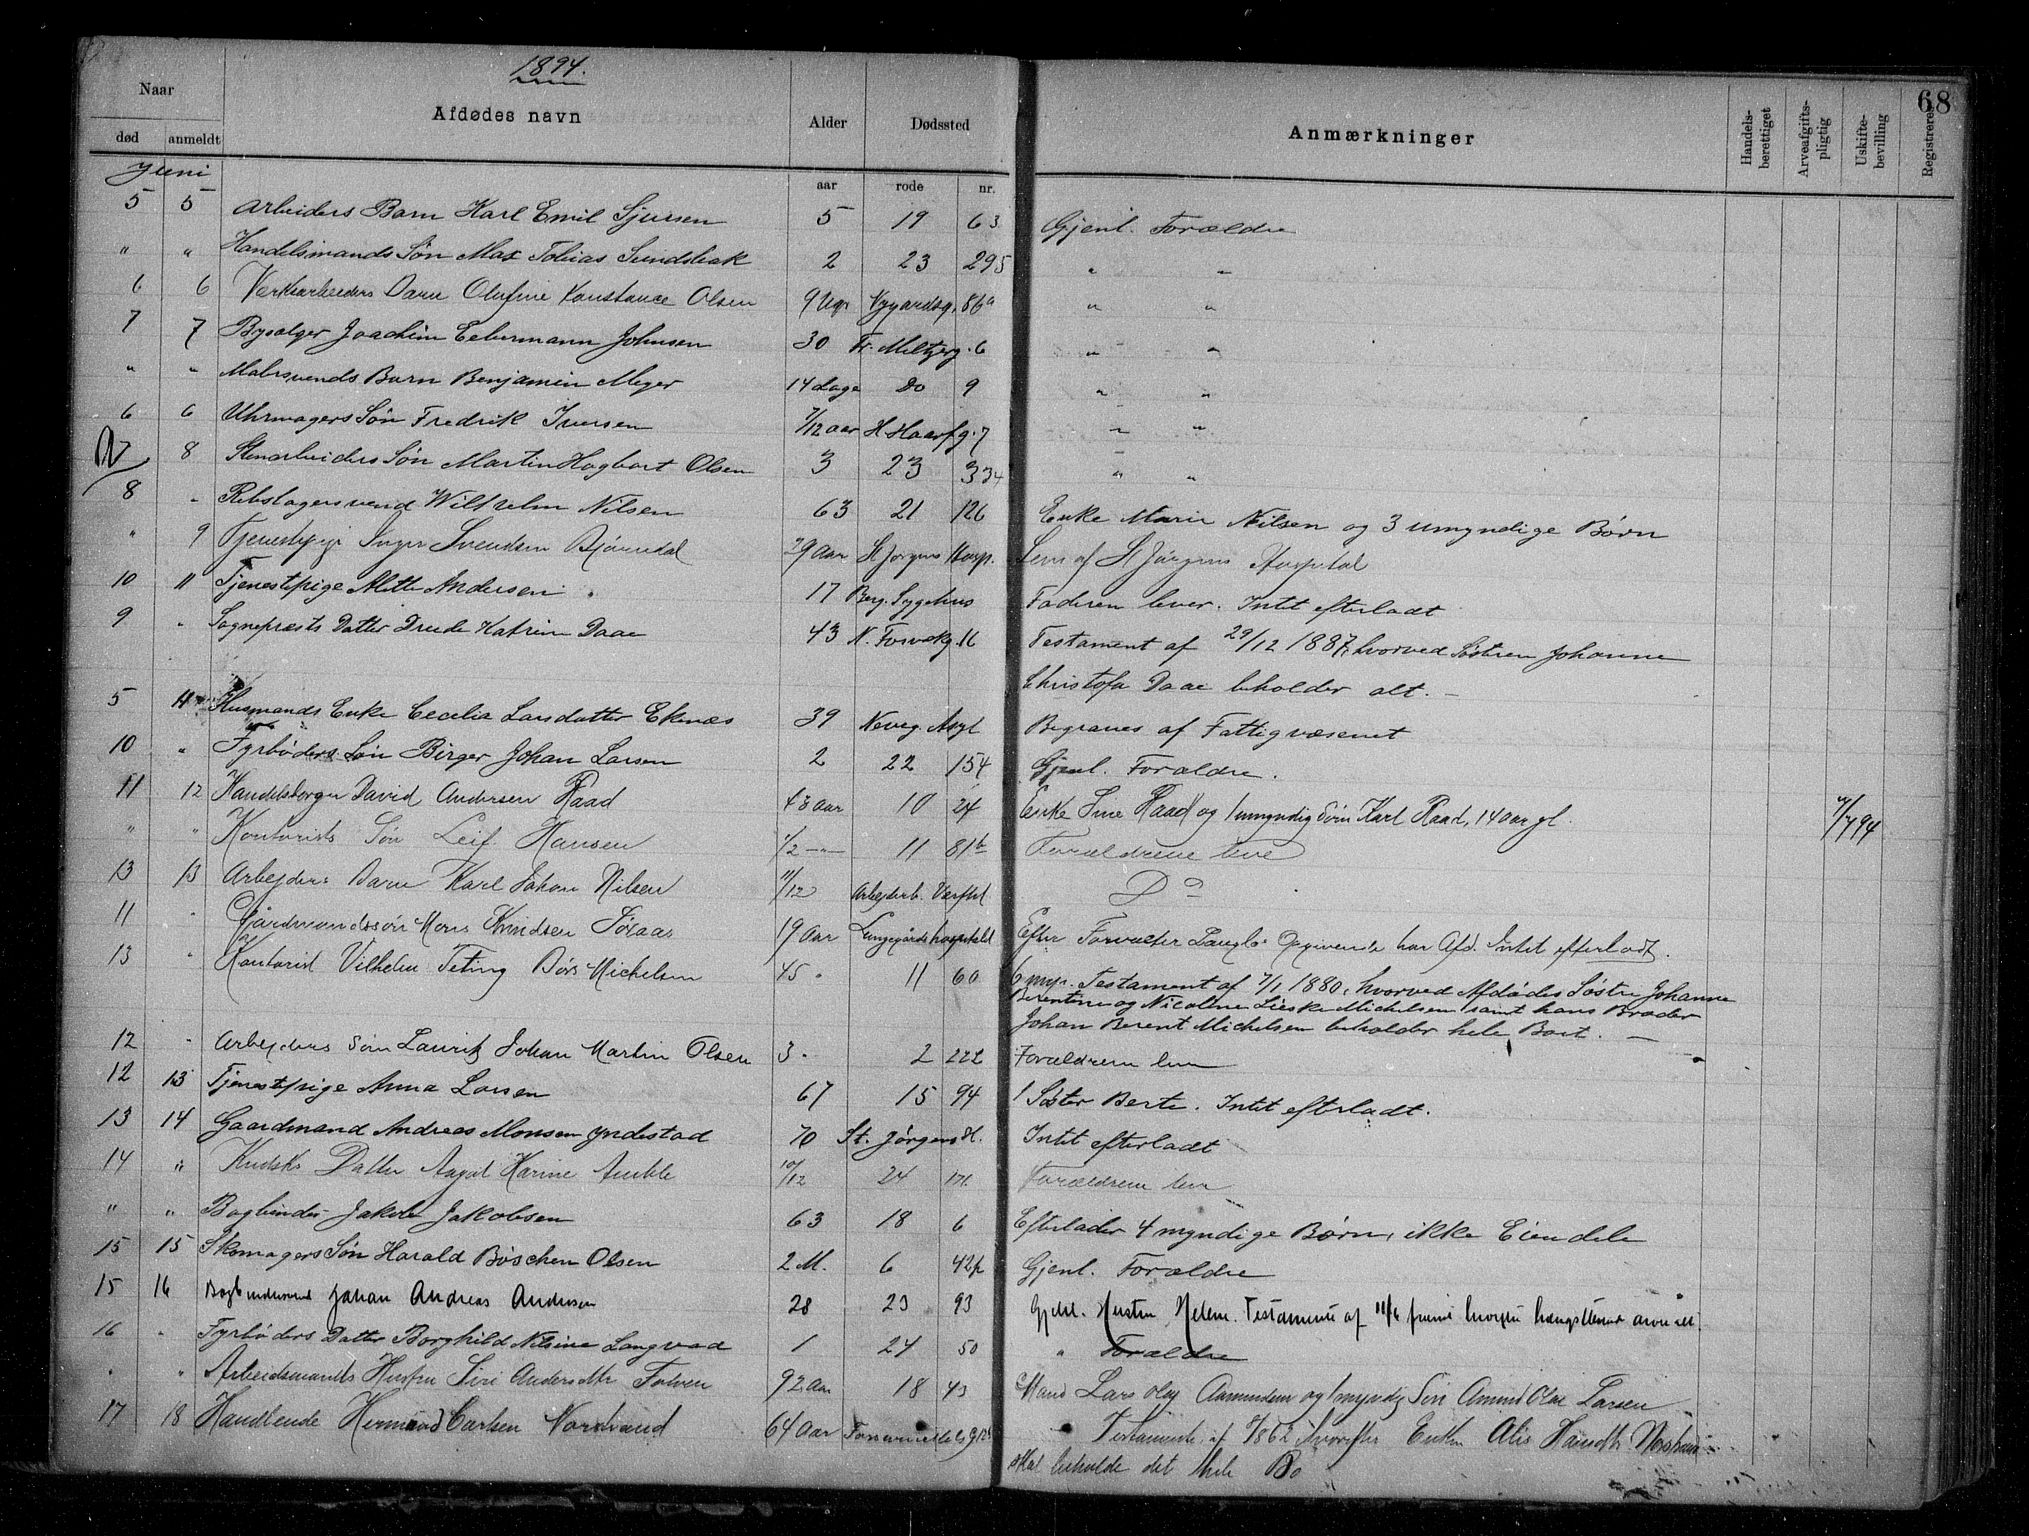 1894.
68
Naar
Afdødes navn
Alder
Dødssted
Anmærkninger
Handels-berettiget
Arveafgifts-pligtig
Uskifte-bevilling
Registreret
død anmeldt
aar rode nr.
Juni
5 5 Arbeiders Barn Karl Emil Sjursen 5 19 63 Gjenl. Forældre
" " Handelsmands Søn Max Tobias Sundsbak 2 23 295 " "
6 6 Verksarbeiders Barn Olufine Konstance Olsen 9 Ugr Nygaardsg. 86a " "
7 7 Bysælger Joachim Johnsen 30 Fr. Meltzerg. 6 " "
" " Malersvends Barn Benjamin Meyer 14 dage Do 9 " "
6 6 Uhrmagers Søn Fredrik Iversen 7/12 aar H. Haarfg. 7 " "
7 8 Stenarbeiders Søn Martin Hagbart Olsen 3 23 334 " "
8 " Rebslagersvend Wilhelm Nilsen 63 21 126 Enke Marie Nilsen og 3 umyndige Børn
" 9 Tjenestepige Inger Svendsen Bjørndal 39 Aar St Jørgens Hosp. Lem af St Jørgens Hospital
10 11 Tjenestepige Alette Andersen 17 Berg. Sygehus Faderen lever. Intet efterladt
9 " Sogneprests Datter Drude Katrine Daae 43 N. Korskg. 16 Testament af 29/12 1887, hvorved Søsteren Johanne
Christofa Daae beholder alt. –
5 11 Husmands Enke Cecelia Larsdatter Eknæs 39 Neveg. Asyl Begraves af Fattigvæsenet
10 " Fyrbøders Søn Birger Johan Larsen 2 22 154 Gjenl. Forældre.
11 12 Handelsborger David Andersen Raad 43 aar 10 24 Enke Ine Raad og 1 umyndig Søn Karl Raad, 14 aar gl. /7 94
" " Kontorists Søn Leif Hansen 1/2 –"– 11 81b Forældrene leve
13 13 Arbejders Barn Karl Johan Nilsen 11/12 Arbejderb. Verftet Do
11 " Gårdmandssøn Mons Knudsen 19 Aar Lungegårdshospitalet Efter Forvalter Opgivende har Afd. Intet efterladt.
13 " Kontorist Vilhelm Teting Børs Michelsen 45 " 11 60 Testament af 7/1 1880, hvorved Afdødes Søstre Johanne
Berentine og Nicoline Lieske Michelsen samt hans Broder
Johan Berent Michelsen beholder hele Boet. –
12 " Arbejders Søn Laurits Johan Martin Olsen 3 " 2 222 Forældrene leve
12 13 Tjenestepige Anna Larsen 67 15 94 1 Søster Berte. Intet efterladt.
13 14 Gaardmand Andreas Monsen Yndestad 70 St. Jørgens H. Intet efterladt
14 " Kudsks Datter Aagot Karine Amble 10/12 24 Forældrene leve
" " Bogbinder Jakob Jakobsen 63 18 6 Efterlader 4 myndige Børn, ikke Eiendele
15 15 Skomagers Søn Harald Bøschen Olsen 2 M. 6 42 Gjenl. Forældre
15 16 Bogbindersvend Johan Andreas Andersen 28 23 93 Gjenl. Hustru Helene. Testamente af 11/6 længstlevende arver alt.
16 " Fyrbøders Datter Borghild Nilsine Langvad 1 24 50 " Forældre
" " Arbeidsmands Hustru Siri Andersdtr Folven 92 Aar 18 43 Mand Lars Olaj Aamundsen og 1 myndig Søn Amund Olai Larsen
17 18 Handlende Hermand Carlsen Nordstrand 64 Aar Testamente af 1862 hvorefter Enken
skal beholde det hele Bo